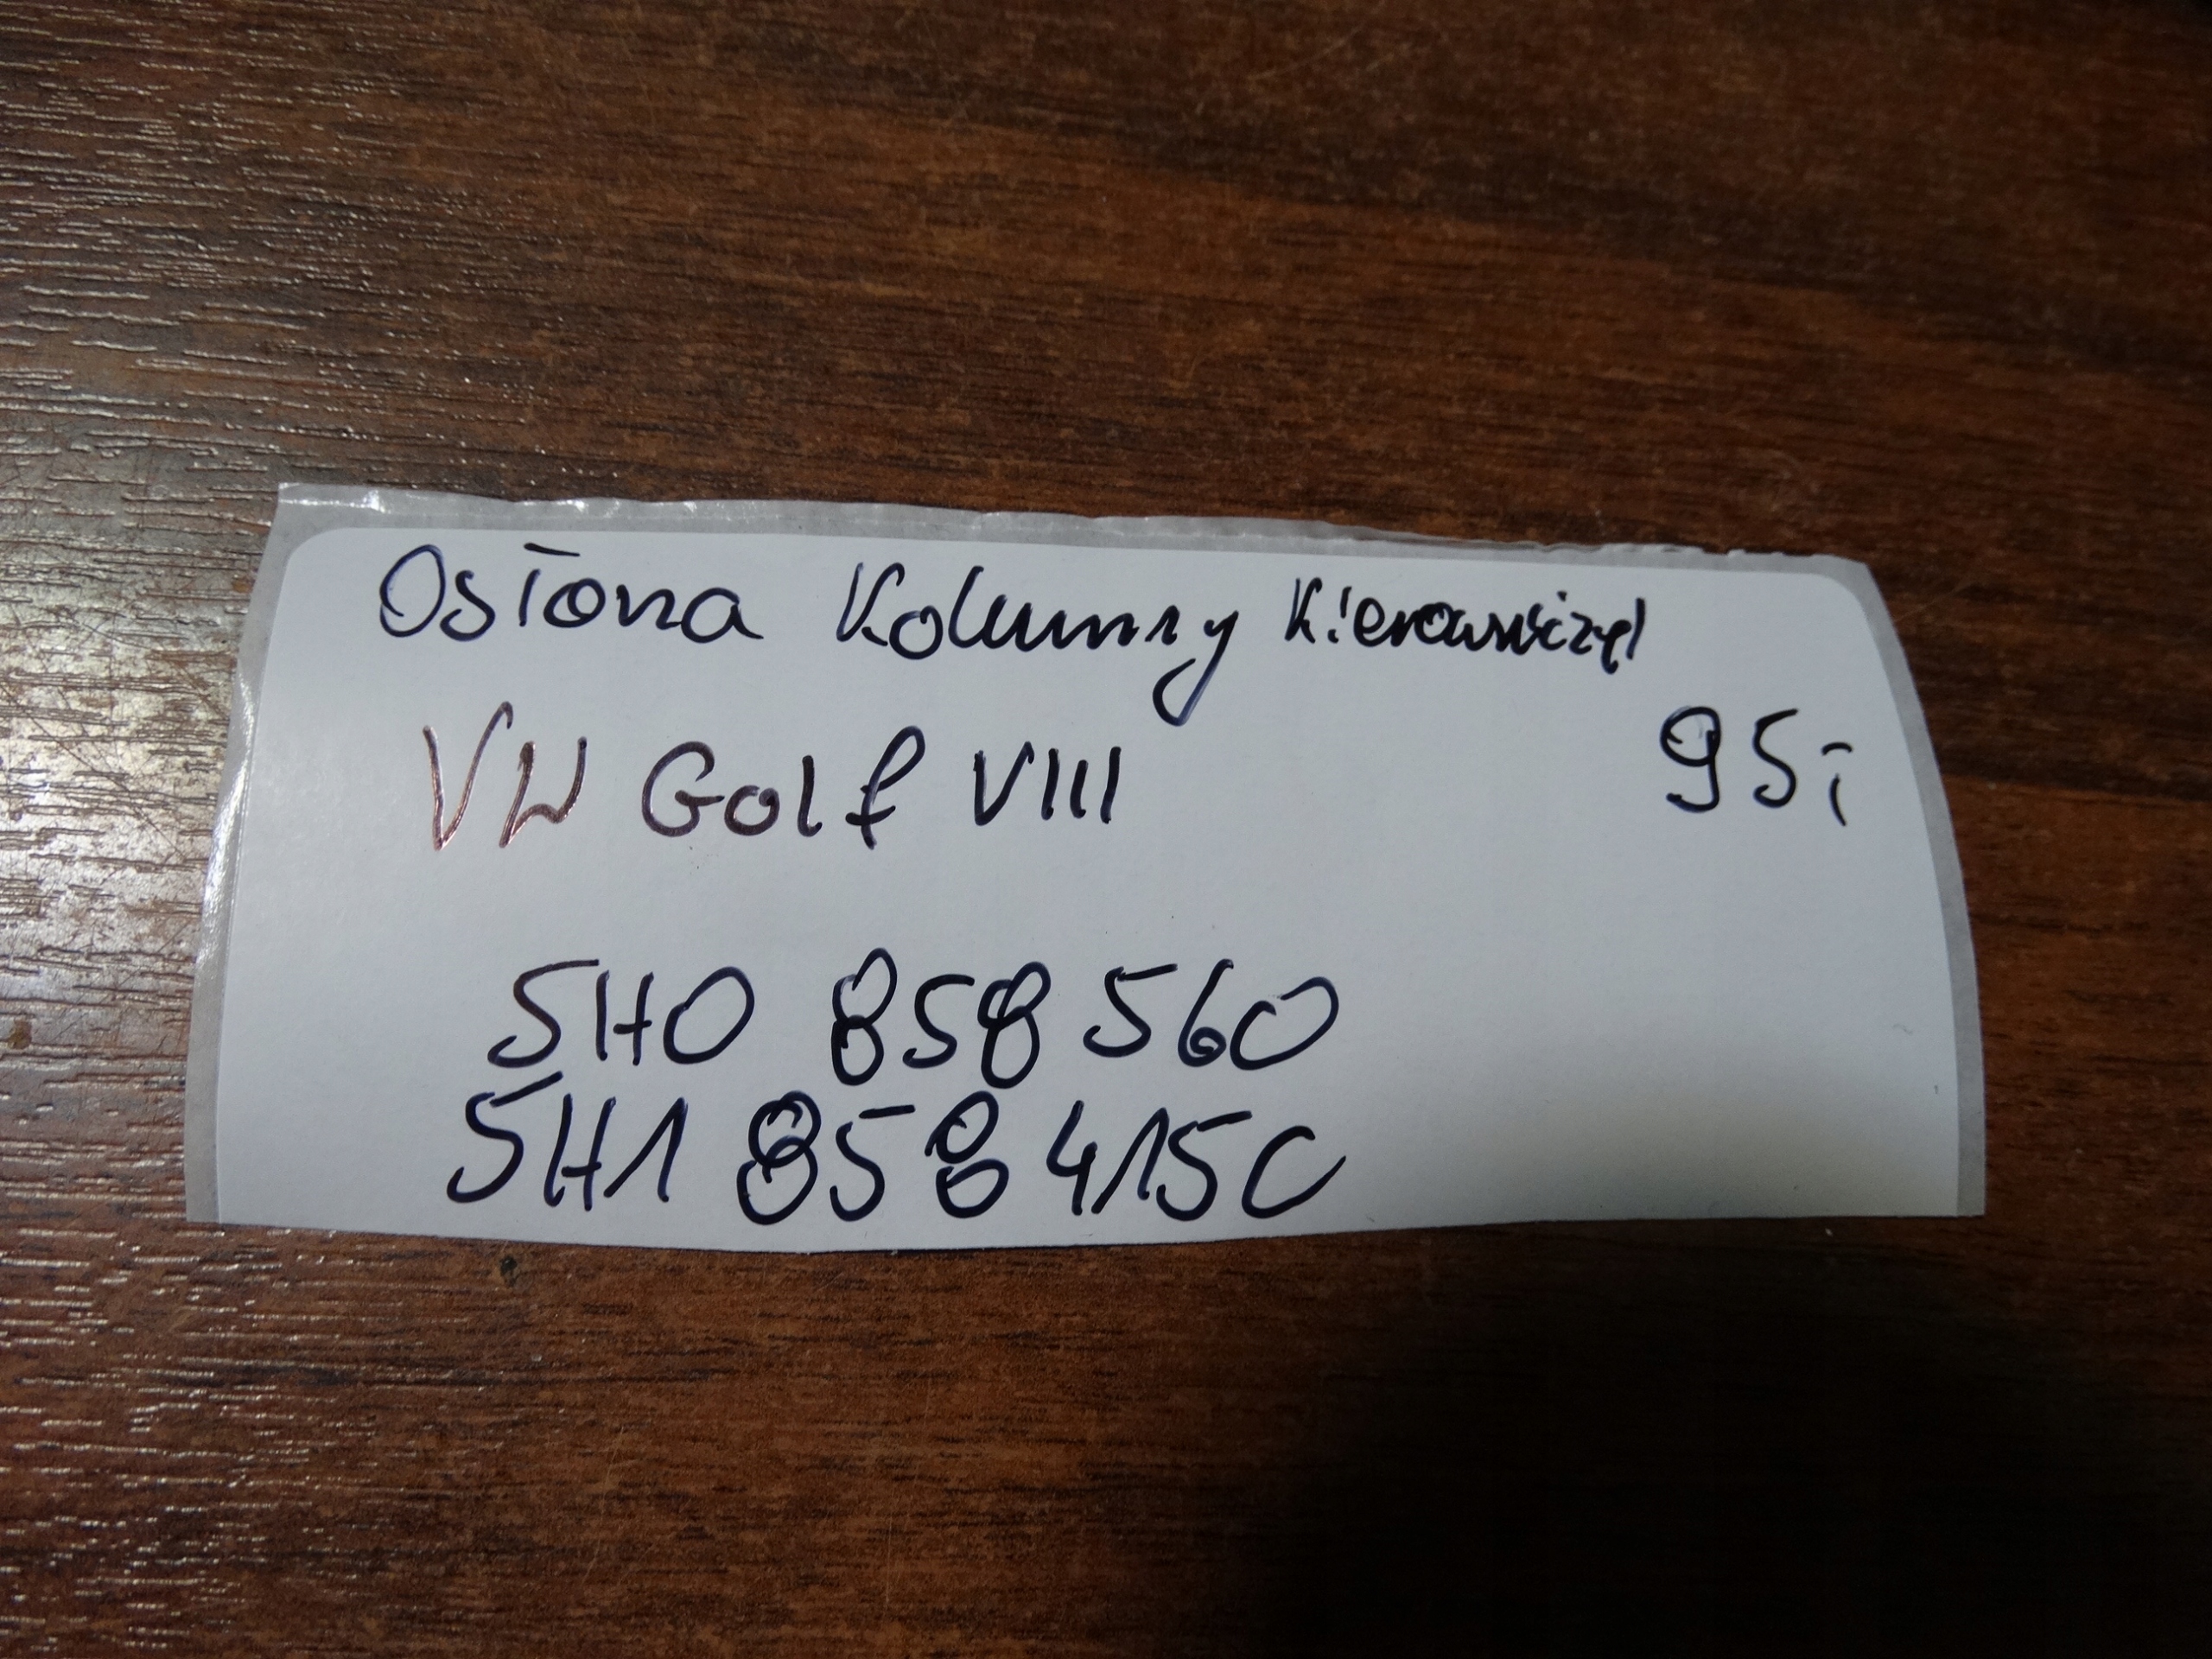 Osłona Kolumny Kierowniczej
VW Golf VIII 95,-
5H0 858 560
5H1 858 415C